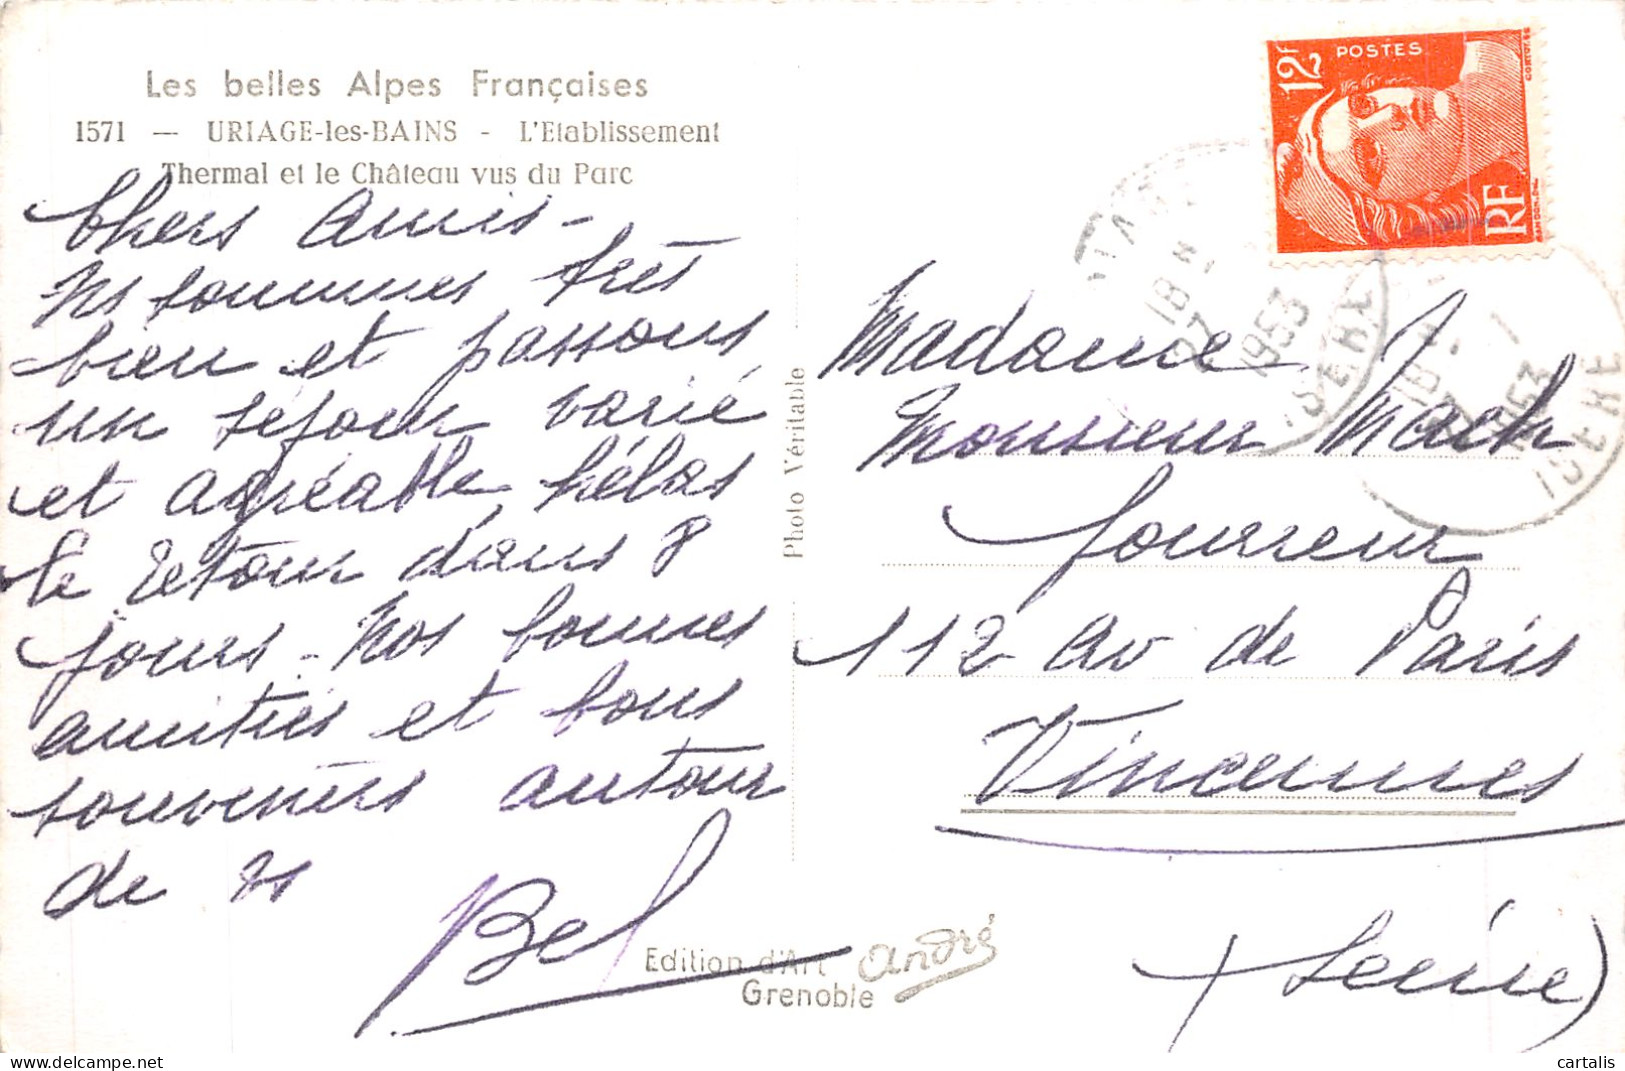 Les belles Alpes Françaises
1571 — URIAGE-les-BAINS - L'Etablissement
Thermal et le Château vus du Parc
Chers Amis -
Ns sommes très
bien et passons
un séjour varié
et agréable, hélas
le retour dans 8
jours. Nos bonnes
amitiés et bons
souvenirs autour
de vs
Bel
Photo Véritable
Edition d'Art André
Grenoble
12F POSTES
RF
18 H
1953
ISERE
18 H
1953
ISERE
Madame
Monsieur Mach
fourreur
112 Av de Paris
Vincennes
(Seine)
cartalis